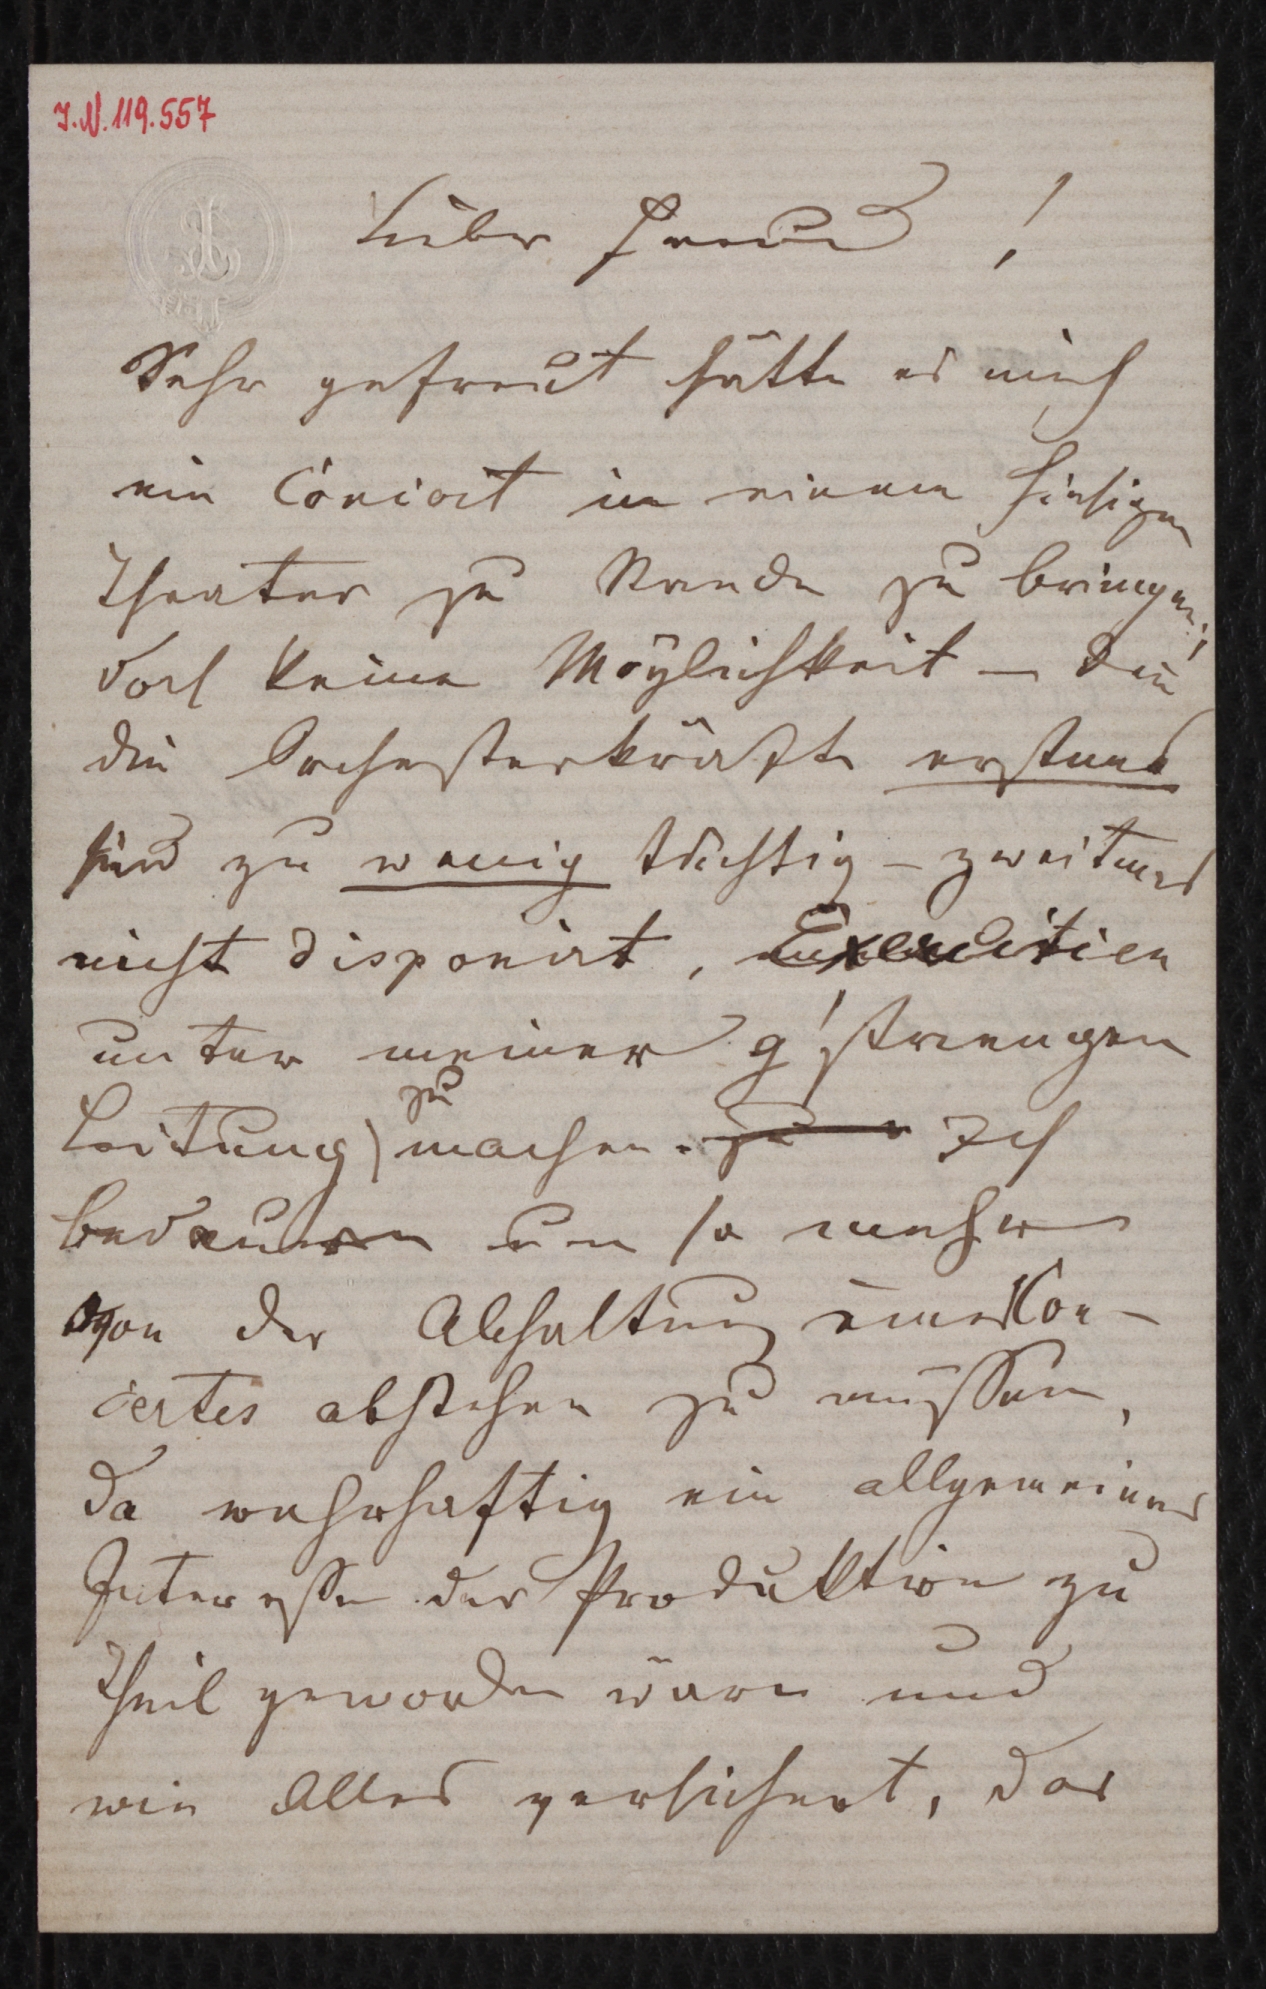 I.N. 119.557
Lieber Freund !
Sehr gefreut hätte es mich
ein Concert in einem hiesigen
Theater zu Stande zu bringen;
doch keine Möglichkeit – denn
die Orchesterkräfte erstens
sind zu wenig tüchtig – zweitens
nicht disponirt, Exercitien
unter meiner g'strengen
Leitung) zu machen. zu Ich
bedauere um so mehr
von der Abhaltung eines Kon-
certes abstehen zu müssen,
da wahrhaftig ein allgemeines
Interesse der Produktion zu
Theil geworden wäre und
wie Alles versichert, das